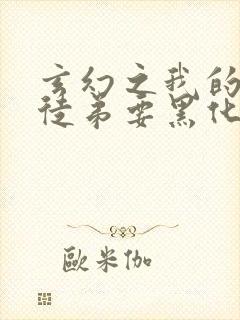 玄幻之我的
徒弟要黑化
歐米伽